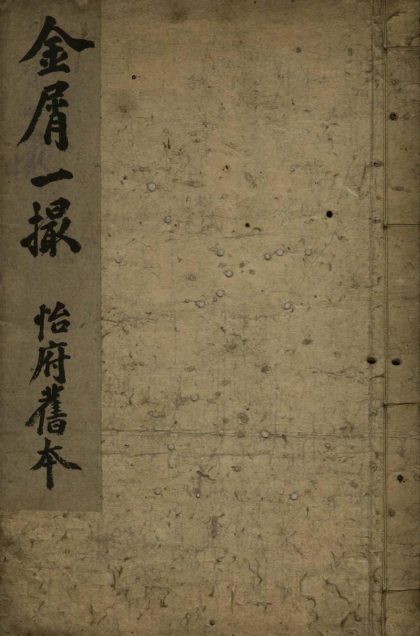 金屑一撮
怡府舊本